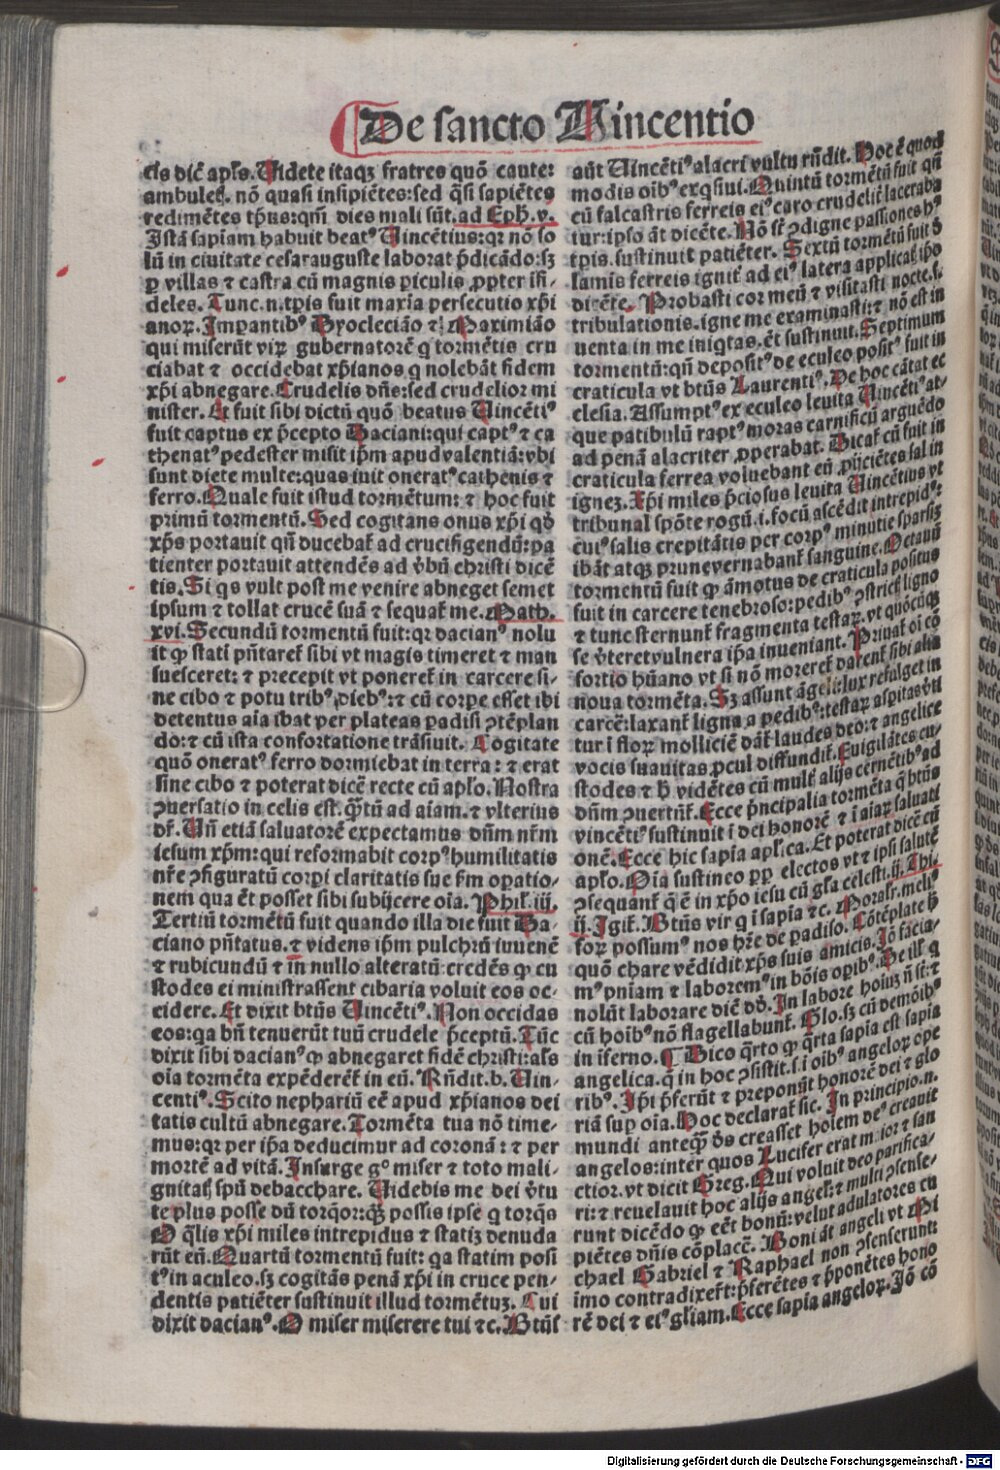 De sancto Vincentio
cis dic̄ apl̄s. Videte itaqꝫ fratres quō caute:
ambuletꝭ. nō quasi insipiētes: sed q̄si sapiētes
redimētes tp̄us: qm̄ dies mali sūt. ad Eph. v.
Istā sapiam habuit beatꝰ Vincētius: qꝛ nō so
lū in ciuitate cesarauguste laborat p̄dicādo: sꝫ
ꝑ villas ⁊ castra cū magnis ꝑiculis ꝓpter ifi-
deles. Tunc .n. tꝑis fuit maxīa persecutio xp̄i
anoꝝ. Imꝑantibꝰ Dyocleciāo ⁊ Maximiāo
qui miserūt viꝝ gubernatorē q̄ tormētis cru
ciabat ⁊ occidebat xp̄ianos q̄ nolebāt fidem
xp̄i abnegare. Crudelis dn̄s: sed crudelior mi
nister. Et fuit sibi dictū quō beatus Vincētiꝰ
fuit captus ex p̄cepto Daciani: qui captꝰ ⁊ ca
thenatꝰ pedester misit ip̄m apud valentiā: vbi
sunt diete multe: quas iuit oneratꝰ cathenis ⁊
ferro. Quale fuit istud tormētum: ⁊ hoc fuit
primū tormentū. Sed cogitans onus xp̄i qd̄
xp̄s portauit qn̄ ducebat̄ ad crucifigendū: pa
tienter portauit attendēs ad v̄bū christi dicē
tis. Si qs vult post me venire abneget semet
ipsum ⁊ tollat crucē suā ⁊ sequat̄ me. Math.
xvi. Secundū tormentū fuit: qꝛ dacianꝰ nolu
it ꝙ stati p̄ntaret̄ sibi vt magis timeret ⁊ man
suesceret: ⁊ precepit vt poneret̄ in carcere si-
ne cibo ⁊ potu tribꝰ diebꝰ: ⁊ cū corꝑe esset ibi
detentus aīa ibat per plateas padisi ꝯtēplan
do: ⁊ cū ista confortatione trāsiuit. Cogitate
quō oneratꝰ ferro dormiebat in terra: ⁊ erat
sine cibo ⁊ poterat dicē recte cū apl̄o. Nostra
ꝯuersatio in celis est. q̄tū ad aiam. ⁊ vlterius
dr̄. Vn̄ etiā saluatorē expectamus dn̄m nr̄m
iesum xp̄m: qui reformabit corpꝰ humilitatis
nr̄e ꝯfiguratū corꝑi claritatis sue s̄m oꝑatio-
nem qua ēt posset sibi subijcere oīa. Phil̄. iij.
Tertiū tormētū fuit quando illa die fuit Da-
ciano p̄ntatus. ⁊ videns ip̄m pulchrū iuuenē
⁊ rubicundū ⁊ in nullo alteratū: credēs ꝙ cu
stodes ei ministrassent cibaria voluit eos oc-
cidere. Et dixit btūs Vincētiꝰ. Non occidas
eos: qa bn̄ tenuerūt tuū crudele p̄ceptū. Tūc
dixit sibi dacianꝰ ꝙ abnegaret fidē christi: als
oīa tormēta expēderēt̄ in eū. Rn̄dit .b. Vin-
centiꝰ. Scito nephariū eē apud xp̄ianos dei
tatis cultū abnegare. Tormēta tua nō time-
mus: qꝛ per ip̄a deducimur ad coronā: ⁊ per
mortē ad vitā. Insurge gͦ miser ⁊ toto mali-
gnitatꝭ sp̄u debacchare. Videbis me dei v̄tu
te plus posse dū torqͦꝛ: qꝫ possis ipse q̄ torqs
O q̄lis xp̄i miles intrepidus ⁊ statiꝫ denuda
rūt eū. Quartū tormentū fuit: qa statim posi
tꝰ in aculeo. sꝫ cogitās penā xp̄i in cruce pen-
dentis patiēter sustinuit illud tormētuꝫ. Cui
dixit dacianꝰ. O miser miserere tui ⁊c. Btūs
aūt Vincētiꝰ alacri vultu rn̄dit. Hoc ē quod
modis oībꝰ exqͥsiui. Quintū tormētū fuit qn̄
cū falcastris ferreis eiꝰ caro crudelit̄ lacera
tur: ipso āt dicēte. Nō st̄ ꝯdigne passiones hꝰ
tp̄is. sustinuit patiēter. Sextū tormētū fuit d̄
lamis ferreis ignit̄ ad eiꝰ latera applicatꝭ ip̄o
dicēte. Probasti cor meū ⁊ visitasti nocte. s.
tribulationis. igne me examinasti: ⁊ nō est in
uenta in me iniqͥtas. ēt sustinuit. Septimum
tormentū: qn̄ depositꝰ de eculeo positꝰ fuit in
craticula vt btūs Laurentiꝰ. De hoc cātat ec
clesia. Assumptꝰ ex eculeo leuita Vincētiꝰ at-
que patibulū raptꝰ moras carnificū arguēdo
ad penā alacriter ꝓperabat. Dicat̄ cū fuit in
craticula ferrea voluebant eū ꝓijciētes sal in
igneꝫ. Xp̄i miles p̄ciosus leuita Vincētius vt
tribunal spōte rogū .i. focū ascēdit intrepidꝰ:
cuiꝰ salis crepitātis per corpꝰ minutie sparsiꝫ
ibāt atqꝫ prune vernabant̄ sanguine. Octauū
tormentū fuit ꝙ āmotus de craticula positus
fuit in carcere tenebroso: pedibꝰ ꝯstrict̄ ligno
⁊ tunc sternunt̄ fragmenta testaꝝ. vt quōcūqꝫ
se v̄teret vulnera ip̄a inueniant. Priuat̄ oī cō
fortio hūano vt si nō moreret̄ darent̄ sibi alia
noua tormēta. Sꝫ assunt āgeli: lux refulget in
carcē: laxant̄ ligna a pedibꝰ: testaꝝ asꝑitas v̄ti
tur ī floꝝ molliciē dāt̄ laudes deo: ⁊ angelice
vocis suauitas ꝓcul diffundit̄. Euigilātes cu-
stodes ⁊ h̄ vidētes cū multꝭ alijs cernētibꝰ ad
dn̄m ꝯuertūt̄. Ecce p̄ncipalia tormēta q̄ btūs
vincētiꝰ sustinuit ī dei honorē ⁊ ī aiaꝝ saluati
onē. Ecce hic sapīa apl̄ica. Et poterat dicē cū
apl̄o. Oīa sustineo ꝓpꝑ electos vt ⁊ ipsi salutē
ꝯsequant̄ q̄ ē in xp̄o iesu cū gl̄a celesti. ij. Thi.
ij. Igit̄. Btūs vir q̄ ī sapīa ⁊c. Moral̄r. meliꝰ
foꝝ possumꝰ nos hr̄e de padiso. Cōtēplate h̄
quō chare vēdidit xp̄s suis amicis. Jō facia-
mꝰ pn̄iam ⁊ laboremꝰ in bōis oꝑibꝰ. De ill̄ q̄
nolūt laborare diē dō. In labore hoiuꝫ n̄ st̄: ⁊
cū hoībꝰ nō flagellabunt̄. Glo. sꝫ cū demōibꝰ
in īferno. ¶ Dico q̄rto ꝙ q̄rta sapīa est sapīa
angelica. q̄ in hoc ꝯsistit. s. i oībꝰ angeloꝝ oꝑe
ribꝰ. Ip̄i p̄ferūt ⁊ preponūt honorē dei ⁊ glo
riā suꝑ oīa. Hoc declarat̄ sic. In principio .n.
mundi anteq̄ꝫ dō creasset hoīem deꝰ creauit
angelos: inter quos Lucifer erat maior ⁊ san
ctior. vt dicit Greg. Qui voluit deo parifica-
ri: ⁊ reuelauit hoc alijs angel̄: ⁊ multi ꝯsense-
runt dicēdo ꝙ eēt bonū: velut adulatores cū
piētes dn̄is cōplacē. Boni āt angeli vt Mi
chael Gabriel ⁊ Raphael non ꝯsenserunt:
imo contradixer̄t: p̄ferētes ⁊ p̄ponētes hono
rē dei ⁊ eiꝰ gl̄iam. Ecce sapīa angeloꝝ. Jō cō
Digitalisierung gefördert durch die Deutsche Forschungsgemeinschaft - DFG